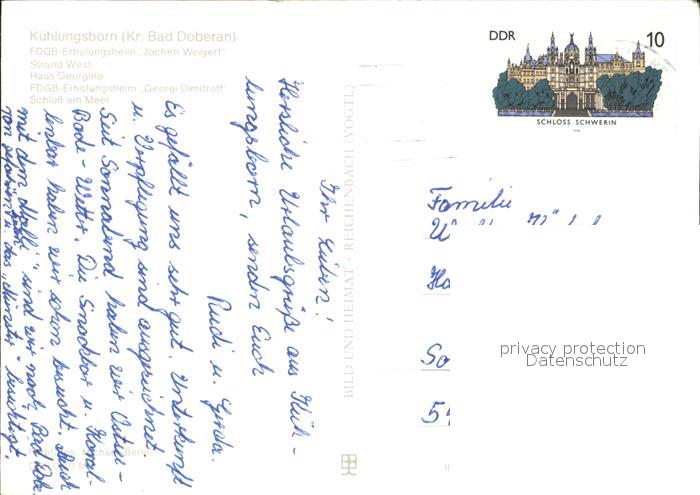 Kühlungsborn (Kr. Bad Doberan)
FDGB-Erholungsheim „Jochen Weigert"
Strand West
Haus Georgine
FDGB-Erholungsheim „Georgi Dimitroff"
Schloß am Meer
DDR
10
SCHLOSS SCHWERIN
Ihr Lieben!
Herzliche Urlaubsgrüße aus Küh-
lungsborn, senden Euch
Rudi u. Gerda.
Es gefällt uns sehr gut. Unterkunft
u. Verpflegung sind ausgezeichnet.
Seit Sonnabend haben wir Ostsee-
Bade-Wetter. Die Snackbar u. Koral-
lenbar haben wir schon besucht. Auch
mit dem „Molli" sind wir nach Bad Dob.
gefahren u. das „Münster" besichtigt.
BILD UND HEIMAT REICHENBACH
Familie
Ha
So
privacy protection
Datenschutz